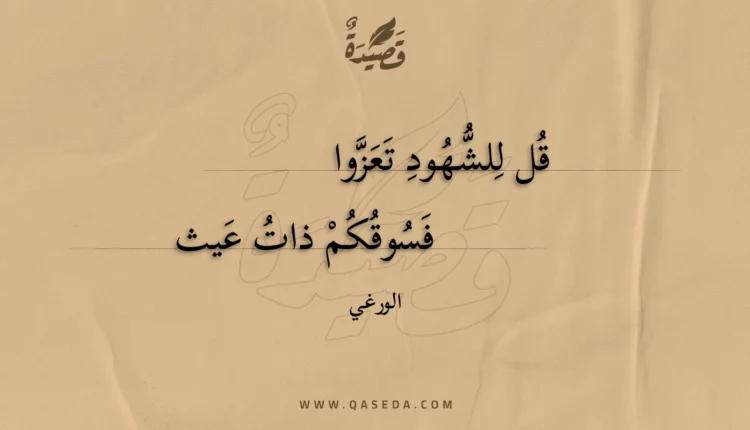 قَصِيْدَةٌ
قُل لِلشُّهُودِ تَعَزَّوا
فَسُوقُكُمْ ذاتُ عَيث
الورغي
WWW.QASEDA.COM